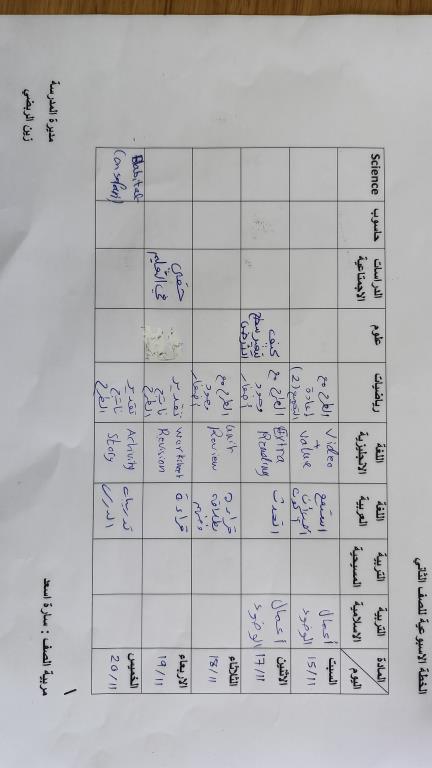 الخطة الاسبوعية للصف الثاني
المادة
اليوم
التربية الاسلامية
التربية المسيحية
اللغة العربية
اللغة الانجليزية
رياضيات
علوم
الدراسات الاجتماعية
حاسوب
Science
السبت
15/11
أعمال
الوضوء
استمع
Video
+
value
الطرح مع
إعادة
التجميع (2)
الاثنين
17/11
أعمال
الوضوء
اتحدث
Extra
Reading
الطرح مع
وجود
أصفار
كيف
يتغير سطح
الأرض
الثلاثاء
18/11
قراءة
Unit
Review
الطرح مع
وجود
أصفار
الاربعاء
19/11
قراءة
worksheet
Revision
تقدير
ناتج
الطرح
حقي
في التعليم
الخميس
20/11
تدريبات
الدرس
Activity
Story
تقدير
ناتج
الطرح
Habitat
مربية الصف : سارة اسعد
مديرة المدرسة
زين الربضي